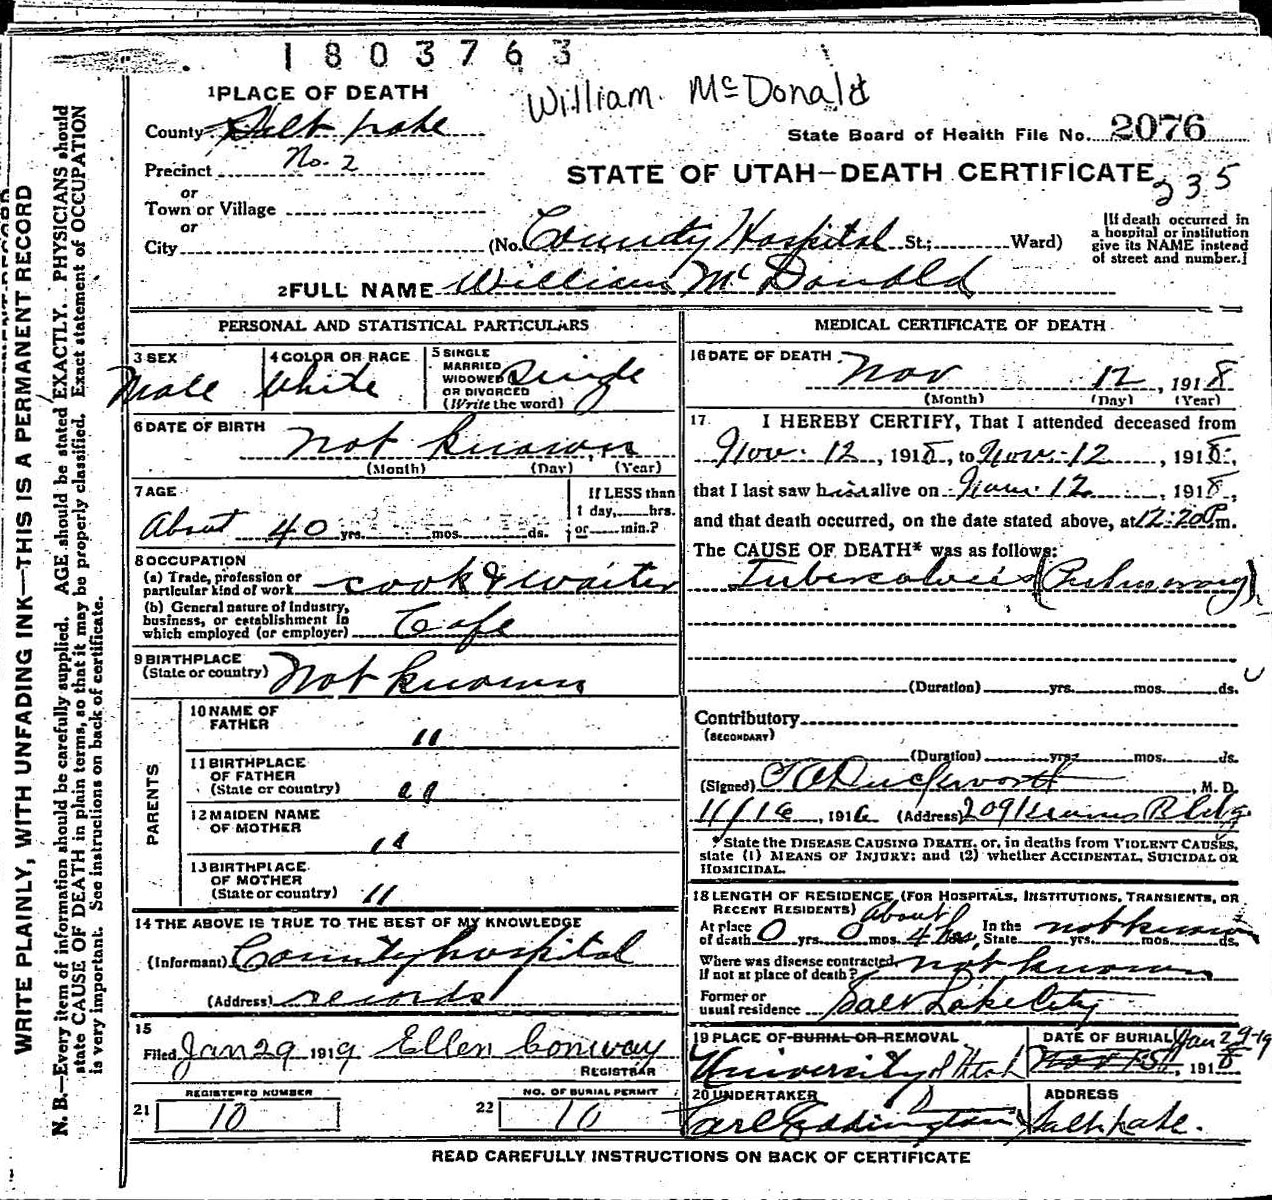 1803763
William McDonald
1 PLACE OF DEATH
County Salt Lake
State Board of Health File No. 2076
Precinct No. 2
STATE OF UTAH—DEATH CERTIFICATE
235
or
Town or Village
or
City (No. County Hospital St.; Ward)
[If death occurred in
a hospital or institution
give its NAME instead
of street and number.]
2 FULL NAME William McDonald
WRITE PLAINLY, WITH UNFADING INK—THIS IS A PERMANENT RECORD
N. B.—Every item of information should be carefully supplied. AGE should be stated EXACTLY. PHYSICIANS should
state CAUSE OF DEATH in plain terms, so that it may be properly classified. Exact statement of OCCUPATION
is very important. See instructions on back of certificate.
PERSONAL AND STATISTICAL PARTICULARS
3 SEX
Male
4 COLOR OR RACE
White
5 SINGLE
MARRIED
WIDOWED
OR DIVORCED
(Write the word)
Single
6 DATE OF BIRTH
not known
(Month) (Day) (Year)
7 AGE
About 40 yrs. mos. ds.
If LESS than
1 day, hrs.
or min.?
8 OCCUPATION
(a) Trade, profession or
particular kind of work cook & waiter
(b) General nature of industry,
business, or establishment in
which employed (or employer) Cafe
9 BIRTHPLACE
(State or country) Not known
PARENTS
10 NAME OF
FATHER "
11 BIRTHPLACE
OF FATHER
(State or country) "
12 MAIDEN NAME
OF MOTHER "
13 BIRTHPLACE
OF MOTHER
(State or country) "
14 THE ABOVE IS TRUE TO THE BEST OF MY KNOWLEDGE
(Informant) County hospital
(Address) records
15
Filed Jan 29 1919 Ellen Conway
REGISTRAR
REGISTERED NUMBER
21 10
NO. OF BURIAL PERMIT
22 10
MEDICAL CERTIFICATE OF DEATH
16 DATE OF DEATH
Nov 12, 1918
(Month) (Day) (Year)
17 I HEREBY CERTIFY, That I attended deceased from
Nov. 12, 1918, to Nov. 12, 1918,
that I last saw him alive on Nov. 12, 1918,
and that death occurred, on the date stated above, at 12:20 P.m.
The CAUSE OF DEATH* was as follows:
Tuberculosis (Pulmonary)
(Duration) yrs. mos. ds.
Contributory
(SECONDARY)
(Duration) yrs. mos. ds.
(Signed) Duckworth, M. D.
11/16, 1916 (Address) 209 Kearns Bldg
* State the DISEASE CAUSING DEATH, or, in deaths from VIOLENT CAUSES,
state (1) MEANS OF INJURY; and (2) whether ACCIDENTAL, SUICIDAL OR
HOMICIDAL.
18 LENGTH OF RESIDENCE (FOR HOSPITALS, INSTITUTIONS, TRANSIENTS, OR
RECENT RESIDENTS) About
At place
of death 0 yrs. 0 mos. 4 hrs. In the
State not known yrs. mos. ds.
Where was disease contracted,
If not at place of death? not known
Former or
usual residence Salt Lake City
19 PLACE OF BURIAL OR REMOVAL
University of Utah
DATE OF BURIAL Jan 29-19
Nov 15, 1918
20 UNDERTAKER
Carl Eddington
ADDRESS
Salt Lake.
READ CAREFULLY INSTRUCTIONS ON BACK OF CERTIFICATE